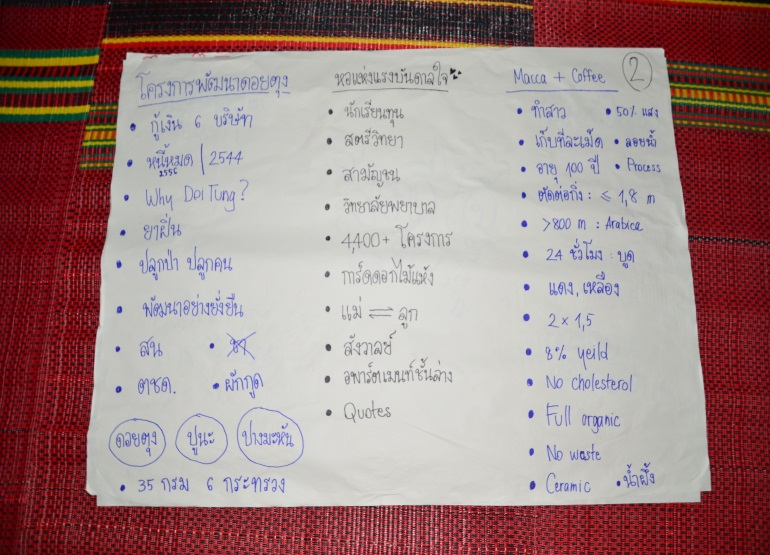 โครงการพัฒนาดอยตุง
• กู้เงิน 6 บริษัท
• หนี้หมด | 2544
2556
• Why Doi Tung?
• ยาฝิ่น
• ปลูกป่า ปลูกคน
• พัฒนาอย่างยั่งยืน
• สน
• ตชด. • ผักกูด
ดอยตุง ปูนะ ปางมะหัน
• 35 กรม 6 กระทรวง
หอแห่งแรงบันดาลใจ
• นักเรียนทุน
• สตรีวิทยา
• สามัญชน
• วิทยาลัยพยาบาล
• 4,400+ โครงการ
• การ์ดดอกไม้แห้ง
• แม่ ⇌ ลูก
• สังวาลย์
• อพาร์ตเมนท์ชั้นล่าง
• Quotes
Macca + Coffee 2
• ทำสาว • 50% แสง
• เก็บทีละเม็ด • ลอยน้ำ
• อายุ 100 ปี • Process
• ตัดต่อกิ่ง : ≤ 1,8 m
• >800 m : Arabica
• 24 ชั่วโมง : บูด
• แดง, เหลือง
• 2 × 1,5
• 8% yeild
• No cholesterol
• Full organic
• No waste
• Ceramic • น้ำผึ้ง